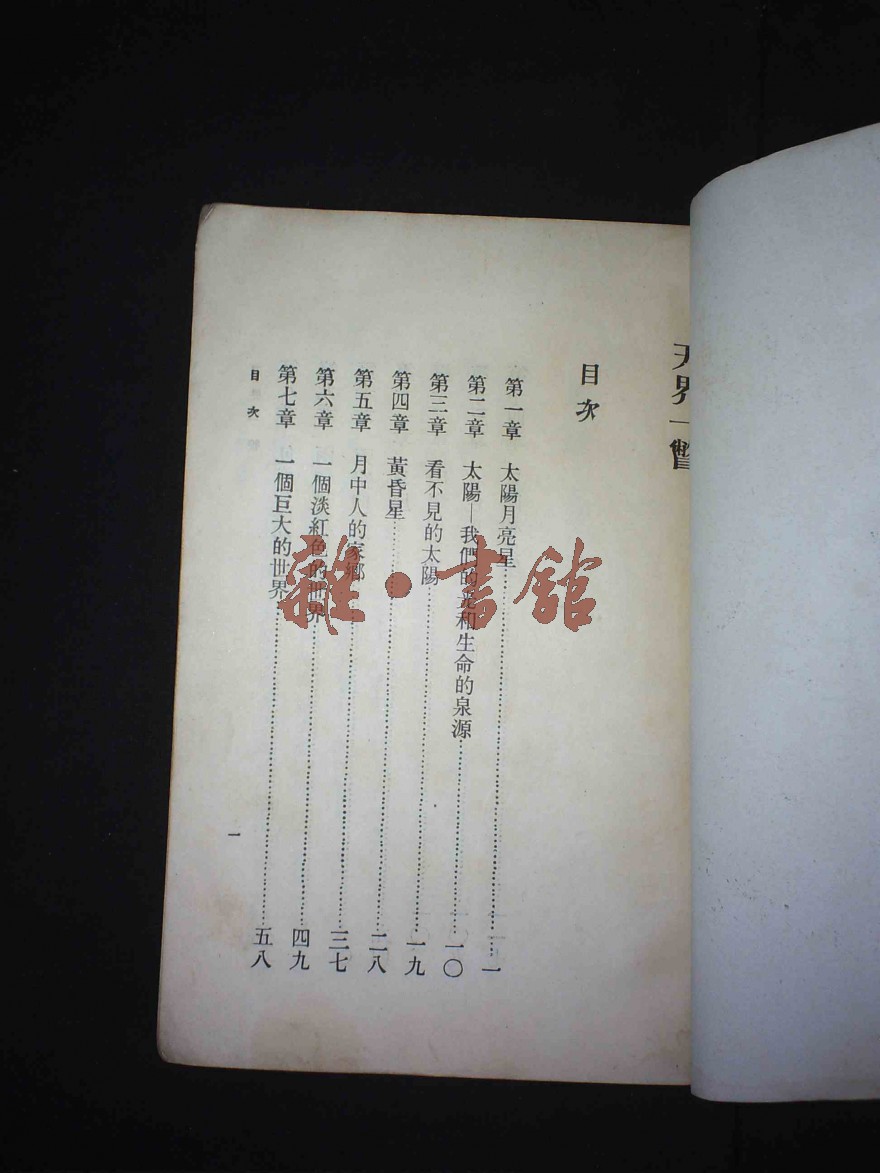 天界一瞥
目次
第一章 太陽月亮星……一
第二章 太陽—我們的光和生命的泉源……一〇
第三章 看不見的太陽……一九
第四章 黃昏星……二八
第五章 月中人的家鄉……三七
第六章 一個淡紅色的世界……四九
第七章 一個巨大的世界……五八
目次
一
雜·書館